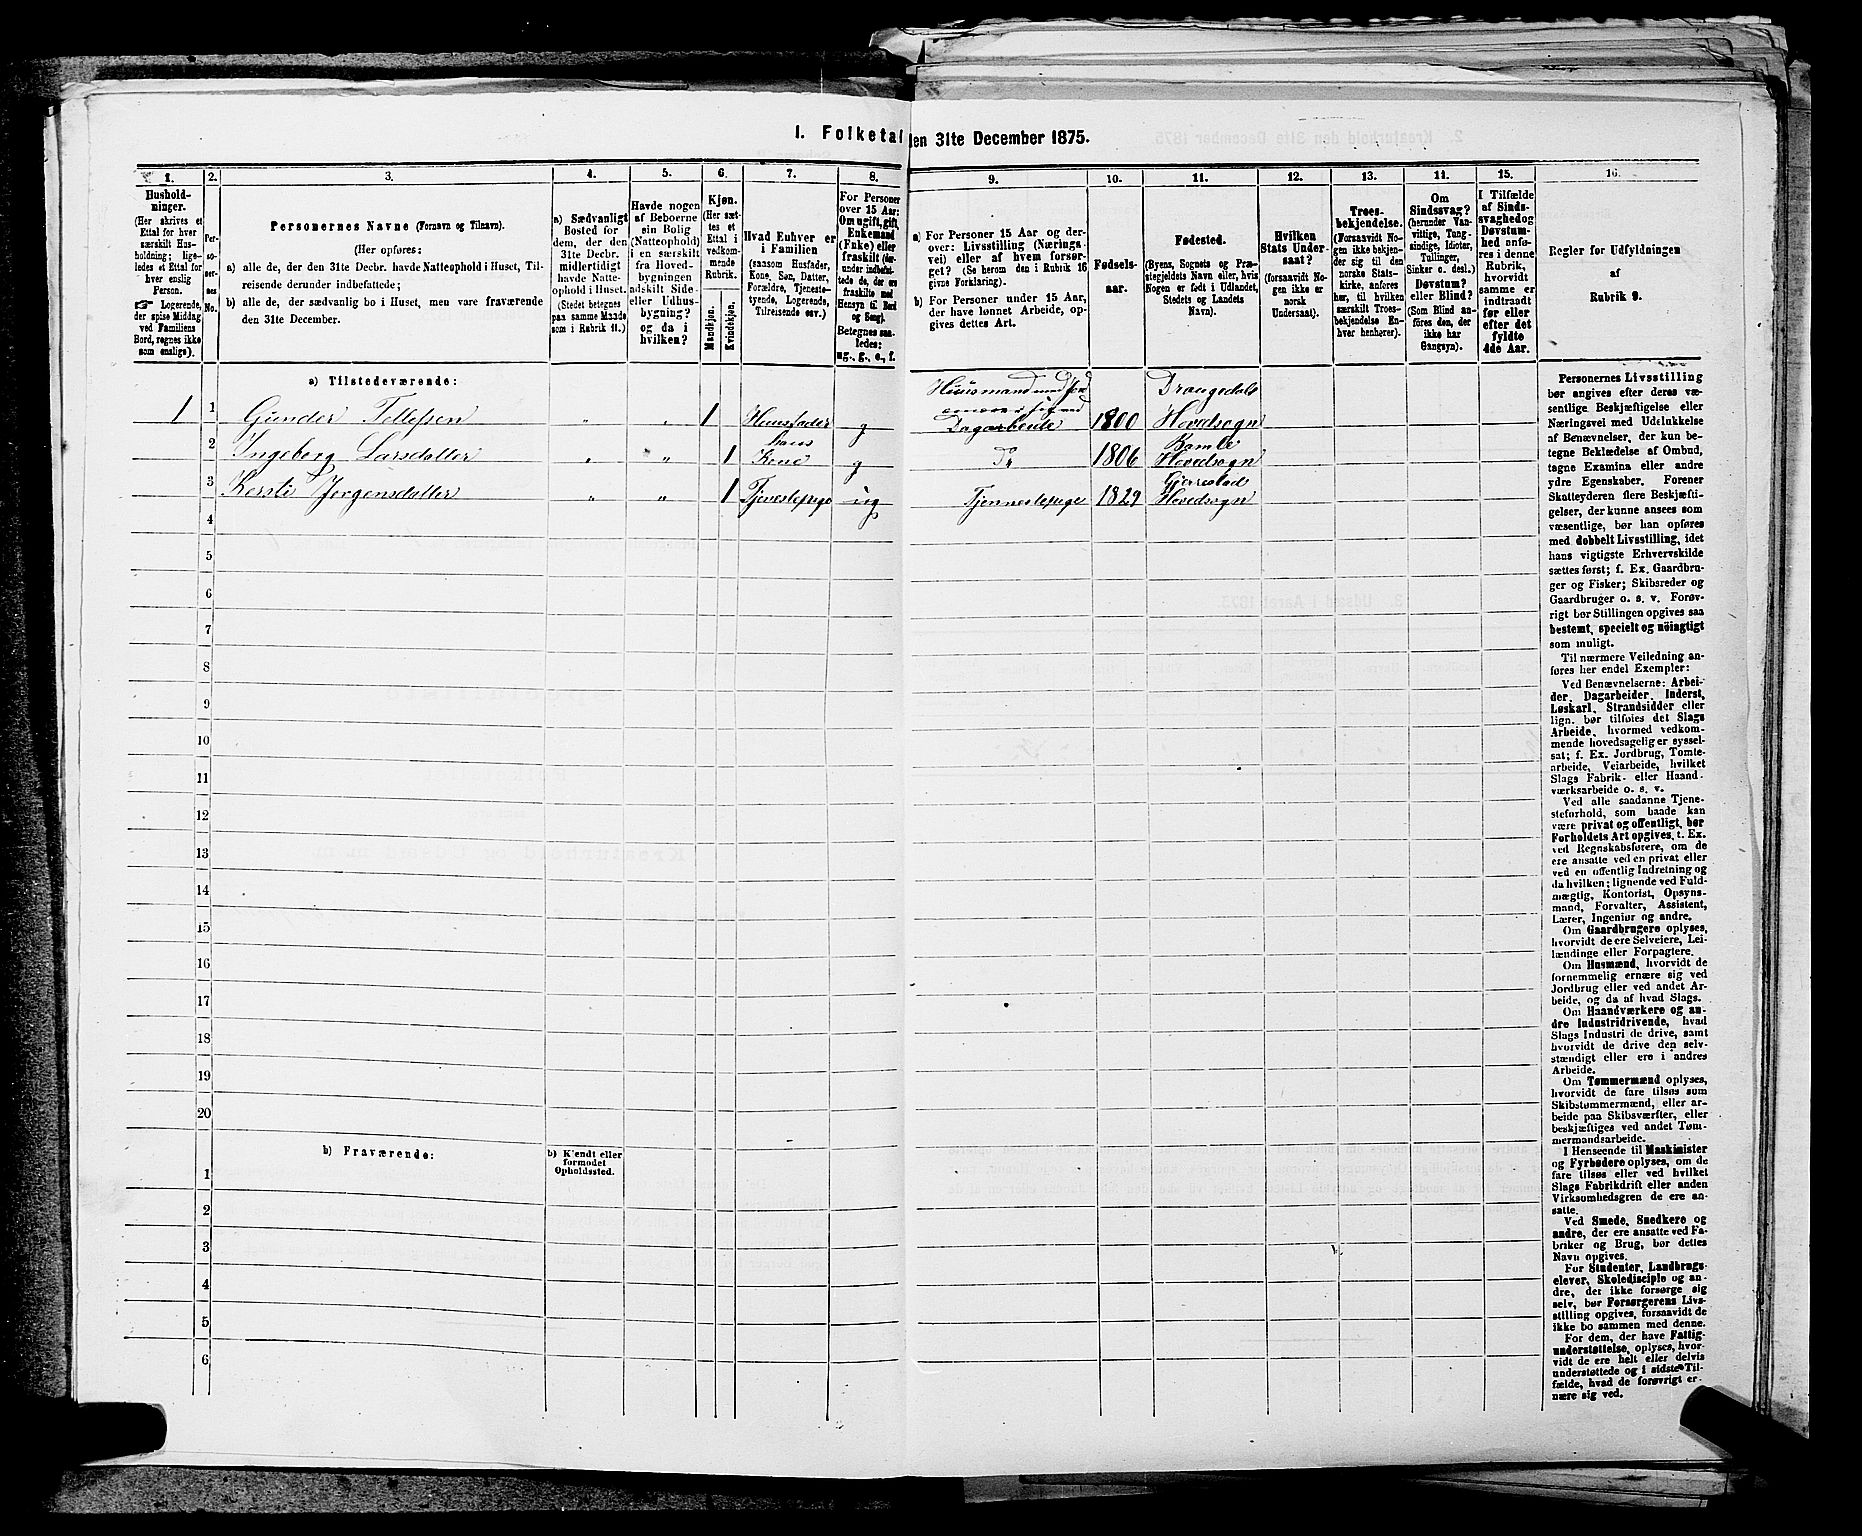 1. Folketal den 31te December 1875.
1.
2.
3.
4.
5.
6.
7.
8.
9.
10.
11.
12.
13.
14.
15.
16.
Hushold-
ninger.
(Her skrives et
Ettal for hver
særskilt Hus-
holdning; lige-
ledes et Ettal for
hver enslig
Person.
☞ Logerende,
der spise Middag
ved Familiens
Bord, regnes ikke
som enslige).
Per-
so-
ner-
nes
No.
Personernes Navne (Fornavn og Tilnavn).
(Her opføres:
a) alle de, der den 31te Decbr. havde Natteophold i Huset, Til-
reisende derunder indbefattede;
b) alle de, der sædvanlig bo i Huset, men vare fraværende
den 31te December.
a) Sædvanligt
Bosted for
dem, der den
31te Decbr.
midlertidigt
havde Natte-
ophold i Huset.
(Stedet betegnes
paa samme Maade
som i Rubrik 11.)
Havde nogen
af Beboerne
sin Bolig
(Natteophold)
i en særskilt
fra Hoved-
bygningen
adskilt Side-
eller Udhus-
bygning?
og da i
hvilken?
Kjøn.
(Her sæt-
tes et
Ettal i
vedkom-
mende
Rubrik.
Mandkjøn.
Kvindekjøn.
Hvad Enhver er
i Familien
(saasom Husfader,
Kone, Søn, Datter,
Forældre, Tjeneste-
tyende, Logerende,
Tilreisende osv.)
For Personer
over 15 Aar:
Om ugift, gift,
Enkemand
(Enke) eller
fraskilt (der-
under indbefat-
tede de, der ere
fraskilte med
Hensyn til Bord
og Seng).
Betegnes saa-
ledes:
ug., g., e., f.
a) For Personer 15 Aar og der-
over: Livsstilling (Nærings-
vei) eller af hvem forsør-
get? (Se herom den i Rubrik 16
givne Forklaring).
b) For Personer under 15 Aar,
der have lønnet Arbeide, op-
gives dettes Art.
Fødsels-
aar.
Fødested.
(Byens, Sognets og Præ-
stegjeldets Navn eller, hvis
Nogen er født i Udlandet,
Stedets og Landets
Navn).
Hvilken
Stats Under-
saat?
(forsaavidt No-
gen ikke er
norsk
Undersaat).
Troes-
bekjendelse.
(Forsaavidt No-
gen ikke bekjen-
der sig til den
norske Stats-
kirke, anføres
her, til hvilken
særskilt Troes-
bekjendelse En-
hver henhører).
Om
Sindssvag?
(herunder Van-
vittige, Tung-
sindige, Idioter,
Tullinger,
Sinker o. desl.)
Døvstum?
eller Blind?
(Som Blind an-
føres den, der
ikke har
Gangsyn).
I Tilfælde
af Sinds-
svaghed og
Døvstum-
hed anfø-
res i denne
Rubrik,
hvorvidt
samme er
indtraadt
før eller
efter det
fyldte
4de Aar.
Regler for Udfyldningen
af
Rubrik 9.
a) Tilstedeværende:
1 1 Gunder Tellefsen " " 1 Huusfader g Huusmand med Jord Dagarbeide 1800 Drangedals Hovedsogn
2 Ingeborg Larsdatter " " 1 hans Kone g Do 1806 Bamle Hovedsogn
3 Kersti Jørgensdatter " " 1 Tjenestepige ug Tjennestepige 1829 Gjerrestad Hovedsogn
4
5
6
7
8
9
10
11
12
13
14
15
16
17
18
19
20
b) Fraværende:
b) Kjendt eller
formodet
Opholdssted.
1
2
3
4
5
6
Personernes Livsstilling
bør angives efter deres væ-
sentlige Beskjæftigelse eller
Næringsvei med Udelukkelse
af Benævnelser, der kun be-
tegne Beklædelse af Ombud,
tagne Examina eller andre
ydre Egenskaber. Forener
Skatteyderen flere Beskjæfti-
gelser, der kunne ansees som
væsentlige, bør han opføres
med dobbelt Livsstilling, idet
hans vigtigste Erhvervskilde
sættes først; f. Ex. Gaardbru-
ger og Fisker; Skibsreder og
Gaardbruger o. s. v. Forøv-
rigt bør Stillingen opgives saa
bestemt, specielt og nöiagtigt
som muligt.
Til nærmere Veiledning an-
føres her endel Exempler:
Ved Benævnelserne: Arbei-
der, Dagarbeider, Inderst,
Løskarl, Strandsidder eller
lign. bør tilføies det Slags
Arbeide, hvormed vedkom-
mende hovedsagelig er syssel-
sat; f. Ex. Jordbrug, Tomte-
arbeide, Veiarbeide, hvilket
Slags Fabrik- eller Haand-
værksarbeide o. s. v.
Ved alle saadanne Tjene-
steforhold, som baade kan
være privat og offentligt, bør
Forholdets Art opgives, t. Ex.
ved Regnskabsførere, om de
ere ansatte ved en privat eller
ved en offentlig Indretning og
da hvilken; lignende ved Fuld-
mægtig, Kontorist, Opsyns-
mand, Forvalter, Assistent,
Lærer, Ingeniør og andre.
Om Gaardbrugere oplyses,
hvorvidt de ere Selveiere, Lei-
lændinge eller Forpagtere.
Om Husmænd, hvorvidt de
fornemmelig ernære sig ved
Jordbrug eller ved andet Ar-
beide, og da af hvad Slags.
Om Haandværkere og an-
dre Industridrivende, hvad
Slags Industri de drive, samt
hvorvidt de drive den selv-
stændigt eller ere i andres
Arbeide.
Om Tømmermænd oplyses,
hvorvidt de fare tilsøs som
Skibstømmermænd, eller ar-
beide paa Skibsværfter, eller
beskjæftiges ved andet Tøm-
mermandsarbeide.
I Henseende til Maskinister
og Fyrbødere oplyses, om de
fare tilsøs eller ved hvilket
Slags Fabrikdrift eller anden
Virksomhedsgren de ere an-
satte.
Ved Smede, Snedkere og
andre, der ere ansatte ved Fa-
briker og Brug, bør dettes
Navn opgives.
For Studenter, Landbrugs-
elever, Skoledisciple og an-
dre, der ikke forsørge sig
selv, bør Forsørgerens Livs-
stilling opgives, forsaavidt de
ikke bo sammen med denne.
For dem, der have Fattig-
understøttelse, oplyses, hvor-
vidt de ere helt eller delvis
understøttede og i sidste Til-
fælde, hvad de forøvrigt er-
nære sig ved.